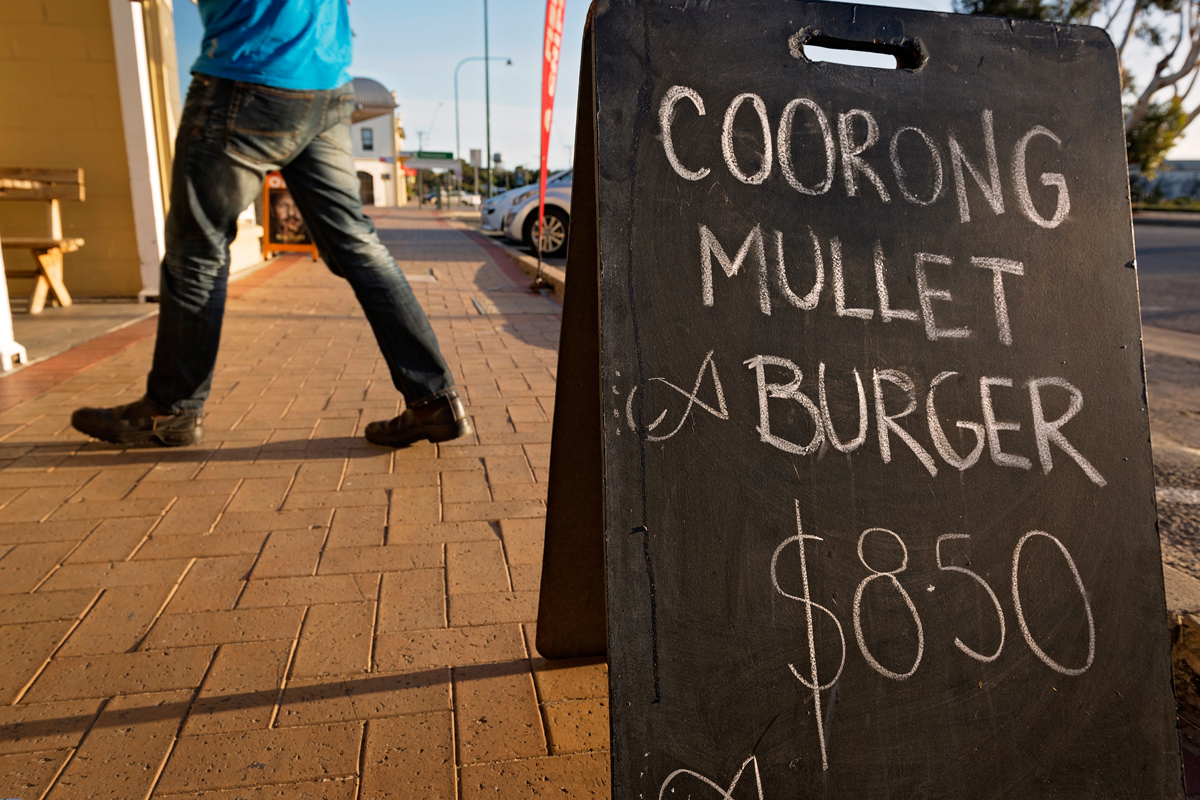 COORONG
MULLET
BURGER
$8.50